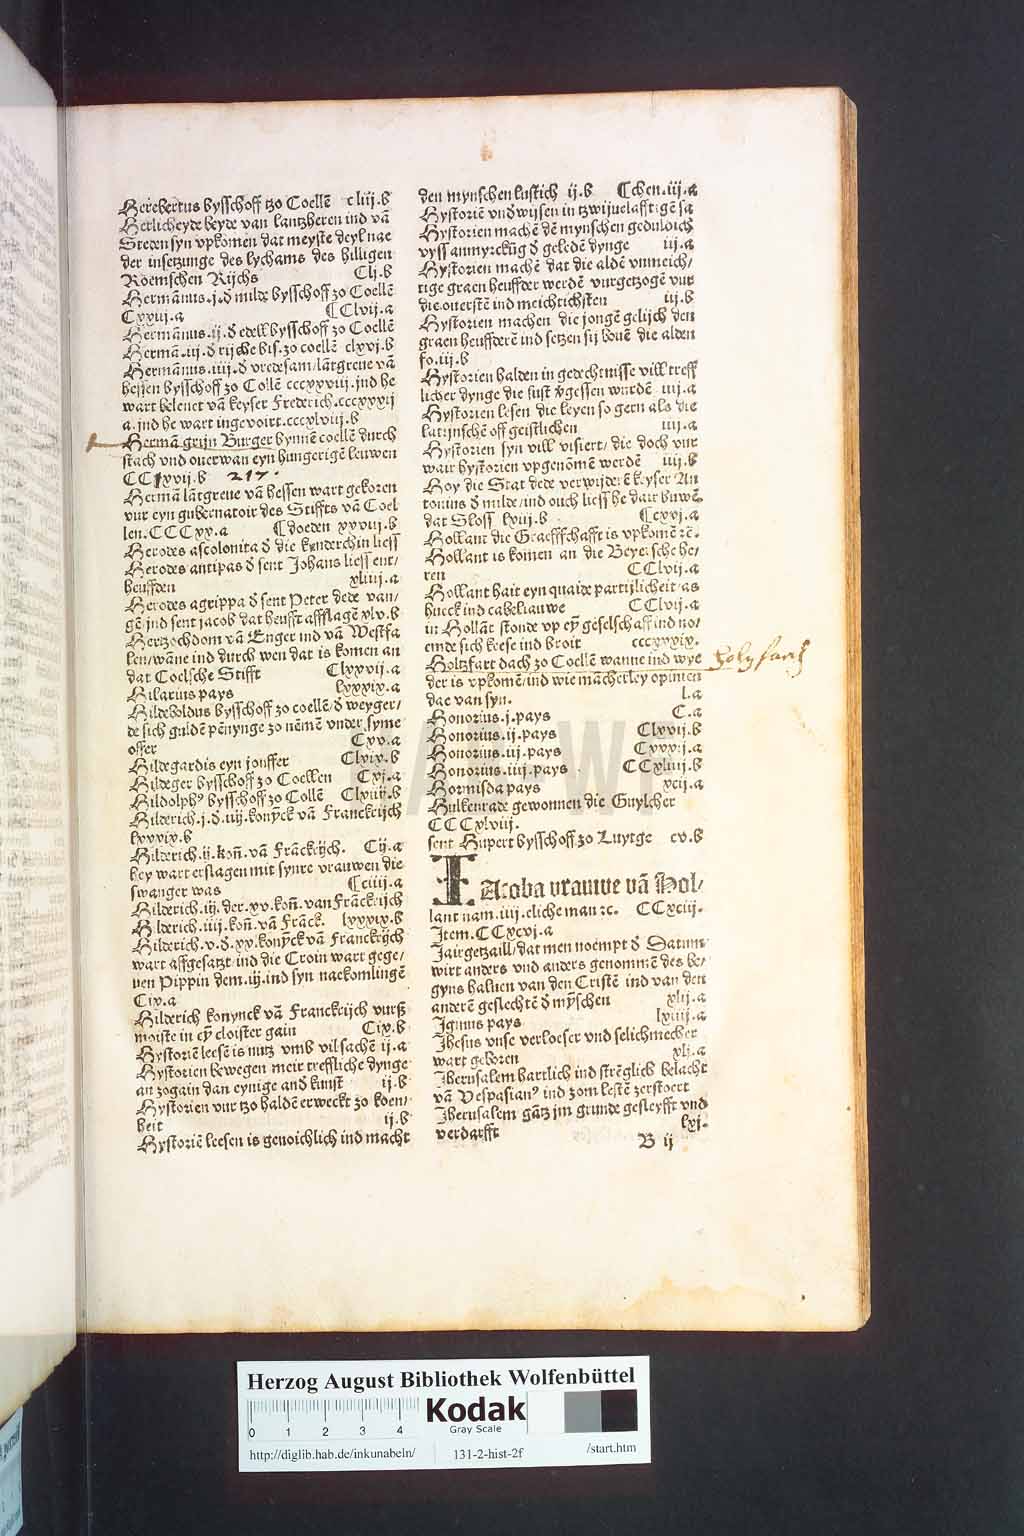 Herebertus bysschoff tzo Coellē cliij.b
Herlicheyde beyde van lantzheren ind vā
Steden syn vpkomen dat meyste deyl nae
der insetzunge des lychams des hilligen
Roemschen Rijchs Clj.b
Hermānus.j.d milde bysschoff zo Coellē
Cxxij.a ¶CLvij.a
Hermānus.ij.d edell bysschoff zo Coellē
Hermā.iij.d rijche bis.zo coellē clxvj.b
Hermānus.iiij.d vredesam/lātgreue vā
hessen bysschoff zo Collē cccxxviij.jnd he
wart belenet vā keyser Frederich.cccxxxij
a.jnd he wart ingevoirt.cccxlviij.b
Hermā grijn Burger bynnē coellē durch
stach vnd ouerwan eyn hungerigē leuwen
CCxvij.b 217.
Hermā lātgreue vā hessen wart gekoren
vur eyn gubernatoir des Stiffts vā Coel
len.CCCxx.a ¶doeden xxviij.b
Herodes ascolonita d die kynderchin liess
Herodes antipas d sent Johans liess ent/
heuffden xliiij.a
Herodes agrippa d sent Peter dede van/
gē jnd sent jacob dat heufft affslagē xlv.b
Hertzochdom vā Enger ind vā Westfa
len/wāne ind durch wen dat is komen an
dat Coelsche Stifft Clxxvij.a
Hilarius pays lxxxix.a
Hildeboldus bysschoff zo coellē/d weyger/
de sich guldē pēnynge zo nēmē vnder syme
offer Cxv.a
Hildegardis eyn jouffer Clvix.b
Hildeger bysschoff zo Coellen Cxj.a
Hildolphꝰ bysschoff zo Collē Clxiij.b
Hilderich.j.d.iiij.konyck vā Franckrijch
lxxxix.b
Hilderich.ij.koñ.vā Frāckrijch. Cij.a
hey wart erslagen mit synre vrauwen die
swanger was ¶ciiij.a
Hilderich.iij.der.xv.koñ.van Frāckrijch
Hilderich.iiij.koñ.vā Frāck. lxxxix.b
Hilderich.v.d.xx.konyck vā Franckrijch
wart affgesatzt/ind die Croin wart gege/
uen Pippin dem.iij.ind syn nackomlingē
Cix.a
Hilderich konynck vā Franckrijch vurss
moiste in eỹ cloister gain Cix.b
Hystoriē leesē is nutz vmb vil sachē ij.a
Hystorien bewegen meir treffliche dynge
an zogain dan eynige and kunst ij.b
Hystorien vur tzo haldē erweckt zo koen/
heit ij.b
Hystoriē leesen is genoichlich ind macht
den mynschen lustich ij.b ¶chen.iij.a
Hystoriē vnd wijsen in tzwijuelafftigē sa
Hystorien machē dē mynschen gedulvich
vyss anmyrckūg d geledē dynge iij.a
Hystorien machē dat die aldē vnmeich/
tige graen heuffder werdē vurgetzogē vur
die.ouerstē ind meichtichsten iij.b
Hystorien machen die jongē gelijch den
graen heuffderē ind setzen sij bouē die alden
fo.iij.b
Hystorien halden in gedechtnisse vill treff
licher dynge die sust vgessen wurdē iiij.a
Hystorien lesen die leyen so gern als die
latijnschē off geistlichen iiij.a
Hystorien syn vill visiert/die doch vur
wair hystorien vpgenōmē werdē iiij.b
Hoy die Stat dede verwijderē keyser An
tonius d milde/ind ouch liess he dair buwē
dat Sloss lviij.b ¶cxvj.a
Hollant die Graeffschafft is vpkomē ꝛē.
Hollant is komen an die Beyersche he/
ren CCLvij.a
Hollant hait eyn quaide partijlicheit/as
hueck ind cabeliauwe CCLvij.a
in Hollāt stonde vp eỹ geselschaff ind no/
emde sich keese ind broit cccxxxix.
Holtzfart dach zo Coellē wanne ind wye
der is vpkomē/ind wie mācherley opinien
dae van syn. l.a
Honorius.j.pays C.a
Honorius.ij.pays Clxvij.b
Honorius.iij.pays Cxxxj.a
Honorius.iiij.pays CCxliiij.b
Hormisda pays xcij.a
Hulkenrade gewonnen die Guylcher
CCCxlviij.
sent Hupert bysschoff zo Luytge cv.b
IAcoba vrauwe vā Hol/
lant nam.iiij.eliche man ꝛc. CCxciij.
Item.CCxcvj.a
Jairgetzaill/dat men noempt d Datum
wirt anders vnd anders genommē des be/
gyns haluen van den Cristē ind van den
anderē geslechtē d mỹschen xlij.a
Iginus pays lxiiij.a
Jhesus vnse verloeser vnd selichmecher
wart geboren xlj.a
Jherusalem hartlich ind strēglich belacht
vā Vespasianꝰ ind zom lestē zerstoert
Jherusalem gātz jm grunde gesleyfft vnd
verdarfft lxj.
B ij
Holtzfart
Herzog August Bibliothek Wolfenbüttel
0 1 2 3 4
Kodak
Gray Scale
http://diglib.hab.de/inkunabeln/ 131-2-hist-2f /start.htm